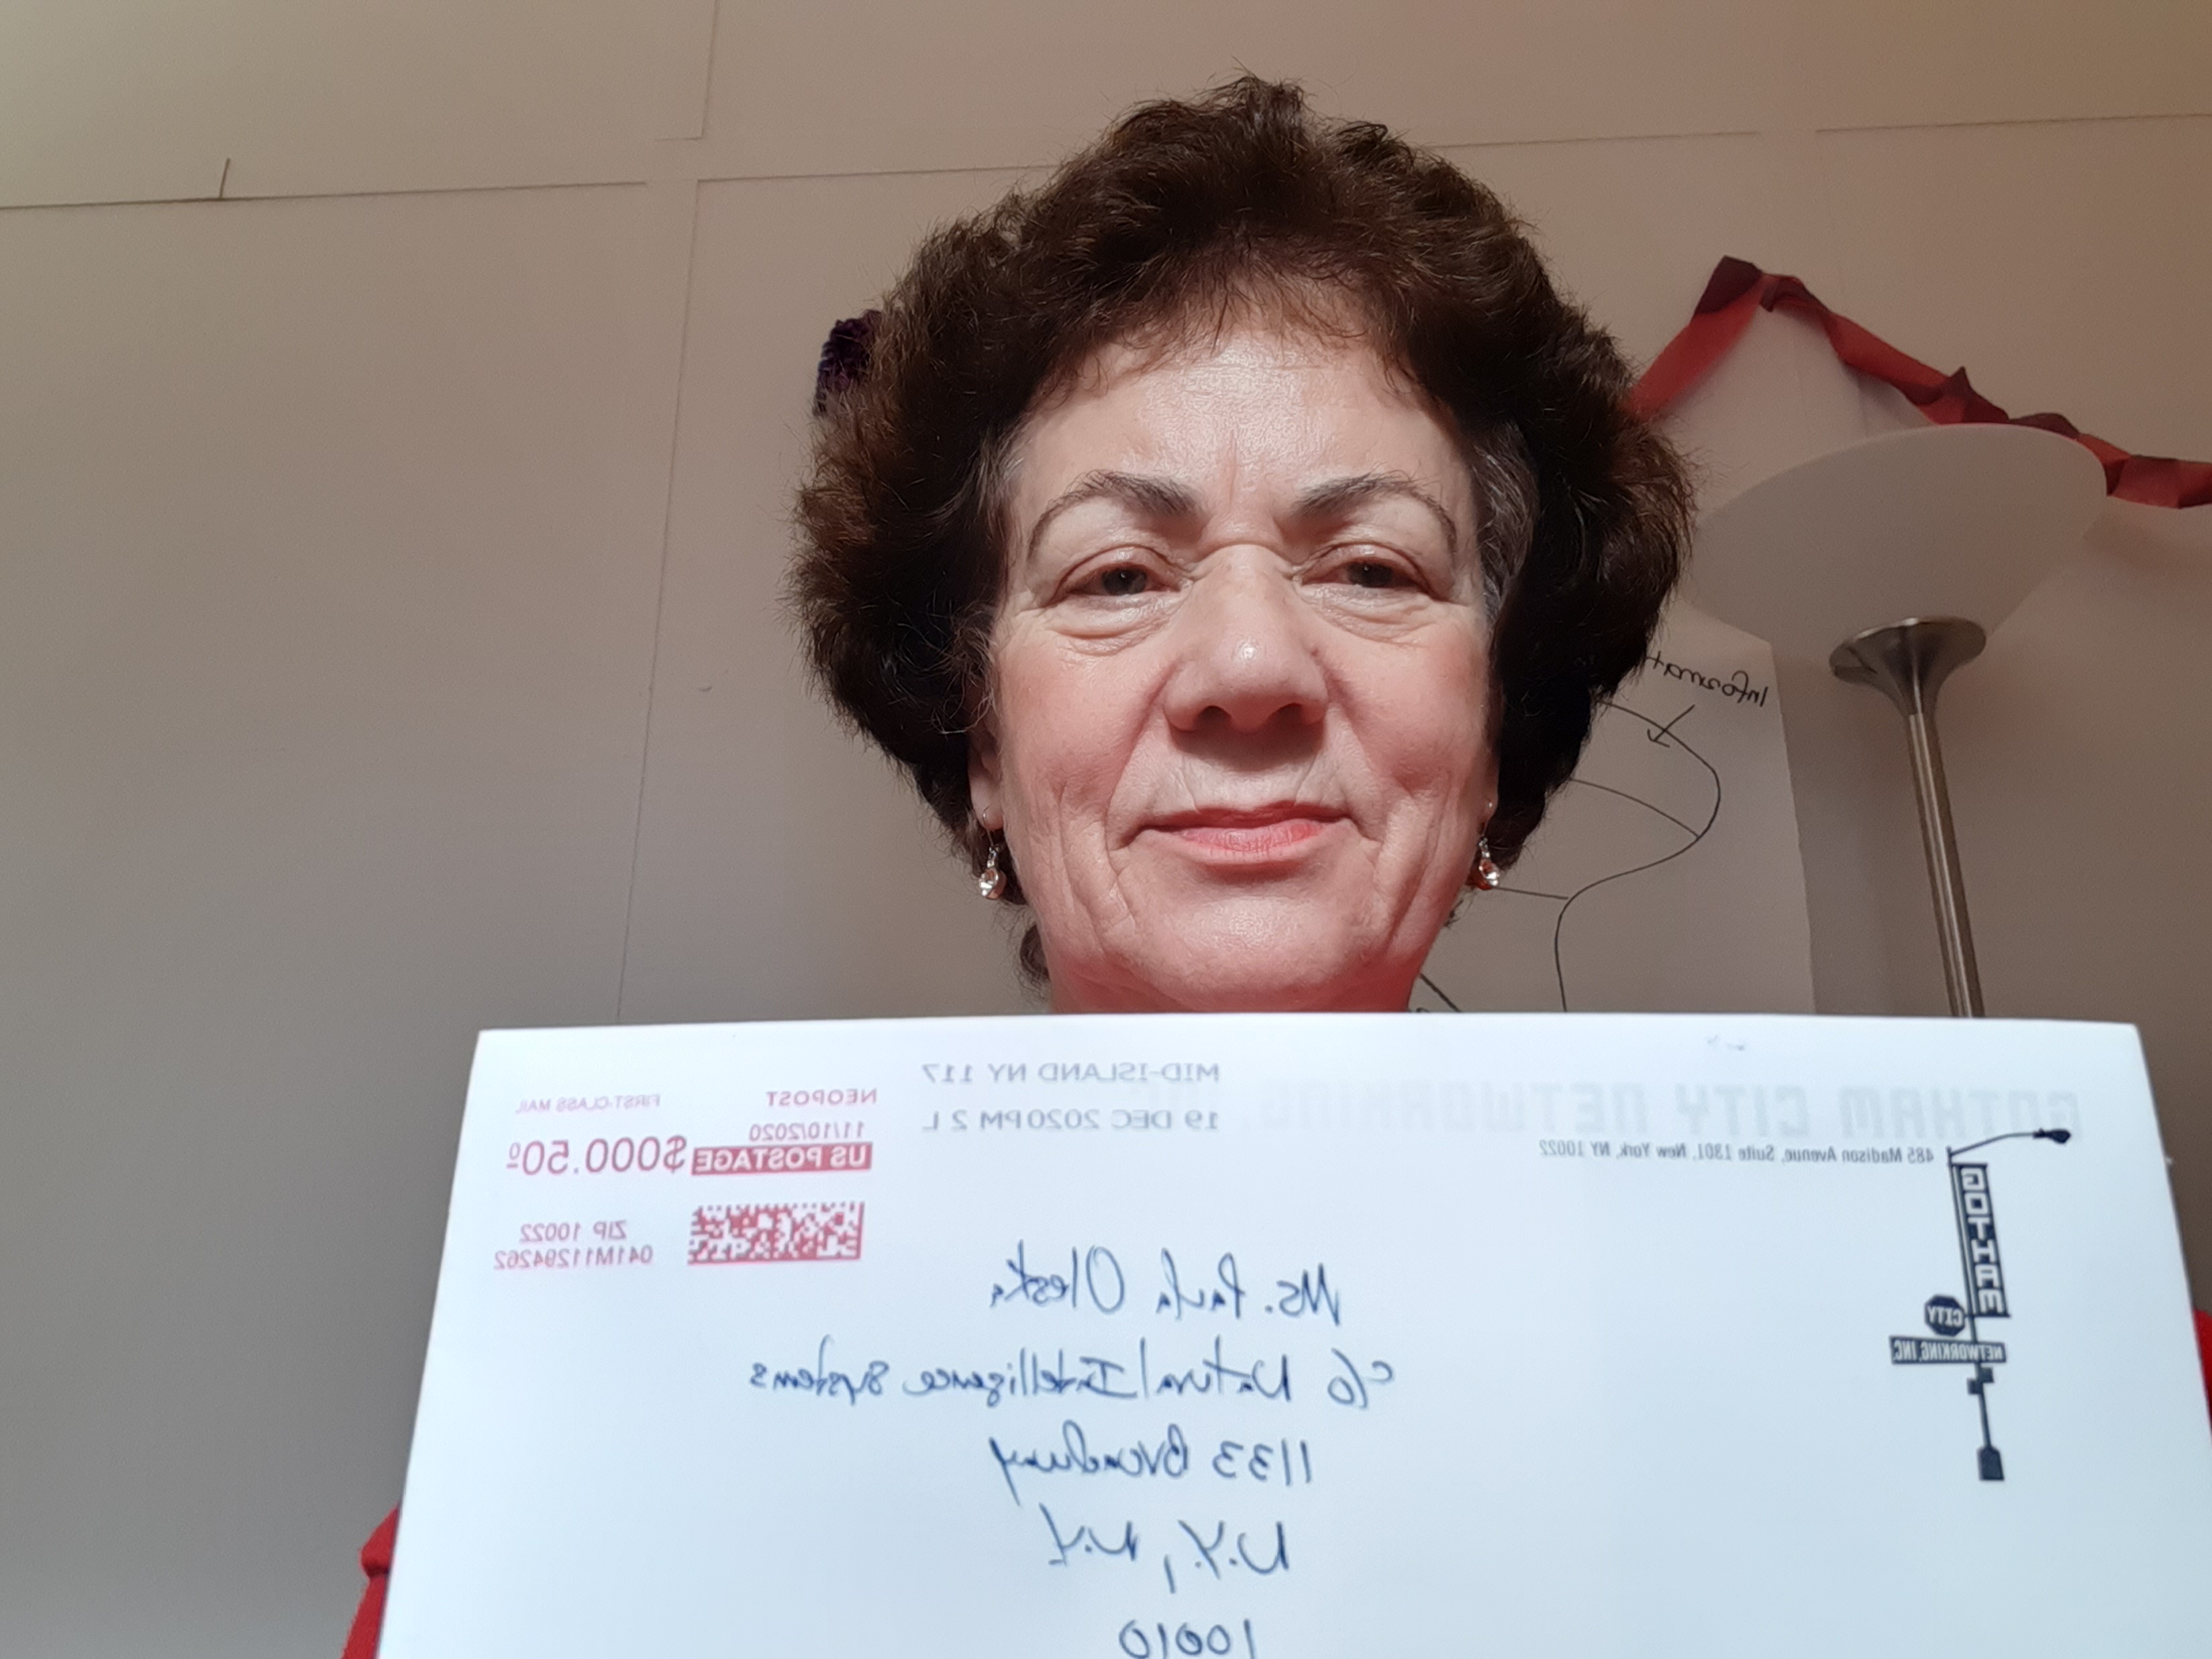 GOTHAM CITY NETWORKING, INC.
485 Madison Avenue, Suite 1301, New York, NY 10022
GOTHAM
CITY
NETWORKING, INC.
MID-ISLAND NY 117
19 DEC 2020 PM 2 L
NEOPOST
FIRST-CLASS MAIL
11/10/2020
US POSTAGE $000.50⁰
ZIP 10022
041M11294262
Ms. Paula Oleska
c/o Natural Intelligence Systems
1133 Broadway
N.Y., N.Y
10010